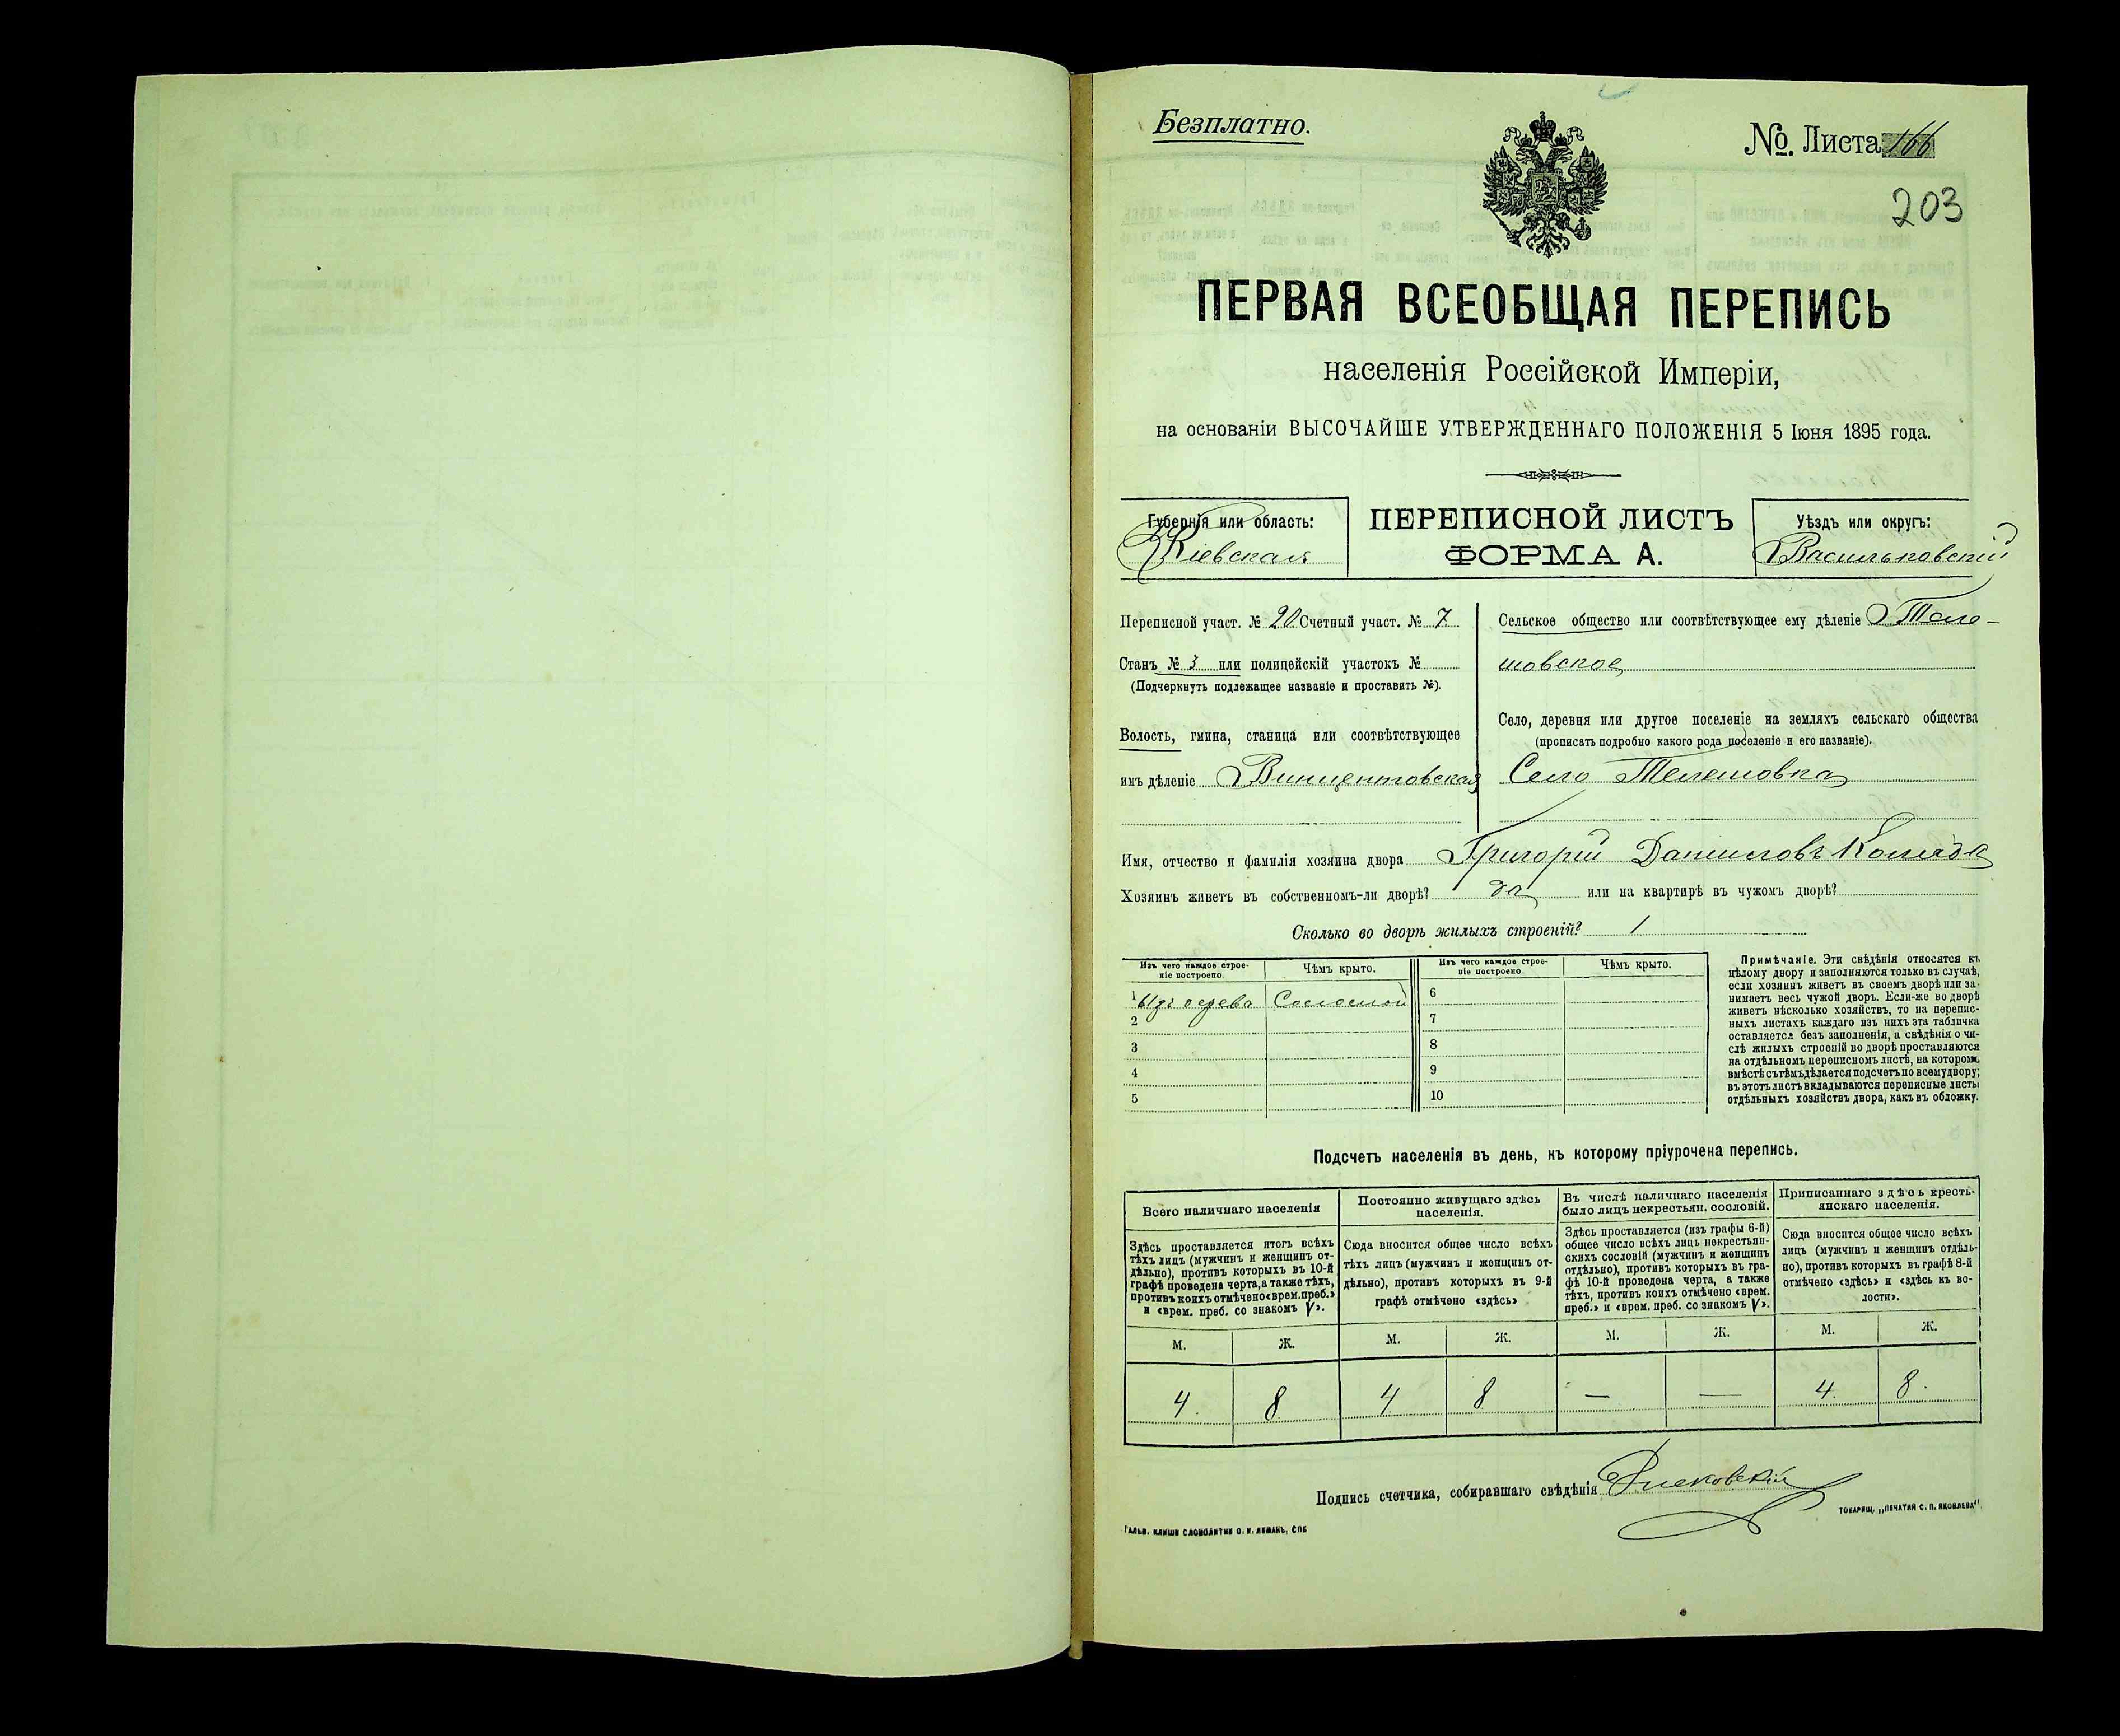 Безплатно.
№. Листа 166
203
ПЕРВАЯ ВСЕОБЩАЯ ПЕРЕПИСЬ
населенія Россійской Имперіи,
на основаніи ВЫСОЧАЙШЕ УТВЕРЖДЕННАГО ПОЛОЖЕНІЯ 5 Іюня 1895 года.
Губернія или область:
Кіевская
ПЕРЕПИСНОЙ ЛИСТЪ
ФОРМА А.
Уѣздъ или округъ:
Васильковскій
Переписной участ. № 20 Счетный участ. № 7
Станъ № 3 или полицейскій участокъ №
(Подчеркнуть подлежащее названіе и проставить №).
Волость, гмина, станица или соотвѣтствующее
имъ дѣленіе Винцентовская
Сельское общество или соотвѣтствующее ему дѣленіе Теле-
шовское
Село, деревня или другое поселеніе на земляхъ сельскаго общества
(прописать подробно какого рода поселеніе и его названіе).
Село Телешовка
Имя, отчество и фамилія хозяина двора Григорій Даниловъ Коляда
Хозяинъ живетъ въ собственномъ-ли дворѣ? да или на квартирѣ въ чужомъ дворѣ?
Сколько во дворѣ жилыхъ строеній? 1
Изъ чего каждое строе-
ніе построено.
Чѣмъ крыто.
Изъ чего каждое строе-
ніе построено.
Чѣмъ крыто.
1 Изъ дерева Соломой 6
2 7
3 8
4 9
5 10
Примѣчаніе. Эти свѣдѣнія относятся къ
цѣлому двору и заполняются только въ случаѣ,
если хозяинъ живетъ въ своемъ дворѣ или за-
нимаетъ весь чужой дворъ. Если-же во дворѣ
живетъ нѣсколько хозяйствъ, то на перепис-
ныхъ листахъ каждаго изъ нихъ эта табличка
оставляется безъ заполненія, а свѣдѣнія о чи-
слѣ жилыхъ строеній во дворѣ проставляются
на отдѣльномъ переписномъ листѣ, на которомъ
вмѣстѣ съ тѣмъ дѣлается подсчетъ по всему двору;
въ этотъ листъ вкладываются переписные листы
отдѣльныхъ хозяйствъ двора, какъ въ обложку.
Подсчетъ населенія въ день, къ которому пріурочена перепись.
Всего наличнаго населенія
Здѣсь проставляется итогъ всѣхъ
тѣхъ лицъ (мужчинъ и женщинъ от-
дѣльно), противъ которыхъ въ 10-й
графѣ проведена черта, а также тѣхъ,
противъ коихъ отмѣчено «врем. преб.»
и «врем. преб. со знакомъ V».
Постоянно живущаго здѣсь
населенія.
Сюда вносится общее число всѣхъ
тѣхъ лицъ (мужчинъ и женщинъ от-
дѣльно), противъ которыхъ въ 9-й
графѣ отмѣчено «здѣсь»
Въ числѣ наличнаго населенія
было лицъ некрестьян. сословій.
Здѣсь проставляется (изъ графы 6-й)
общее число всѣхъ лицъ некрестьян-
скихъ сословій (мужчинъ и женщинъ
отдѣльно), противъ которыхъ въ гра-
фѣ 10-й проведена черта, а также
тѣхъ, противъ коихъ отмѣчено «врем.
преб.» и «врем. преб. со знакомъ V».
Приписаннаго здѣсь кресть-
янскаго населенія.
Сюда вносится общее число всѣхъ
лицъ (мужчинъ и женщинъ отдѣль-
но), противъ которыхъ въ графѣ 8-й
отмѣчено «здѣсь» и «здѣсь къ во-
лости».
М. Ж. М. Ж. М. Ж. М. Ж.
4. 8 4 8 — — 4. 8.
Подпись счетчика, собиравшаго свѣдѣнія
ГАЛЬВ. КЛИШЕ СЛОВОЛИТНИ О. И. ЛЕМАНЪ, СПБ
ТОВАРИЩ. „ПЕЧАТНЯ С. П. ЯКОВЛЕВА"